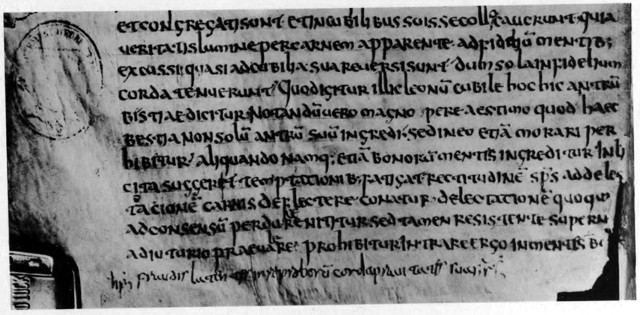 et congregati sunt · et in cubilibus suis se collocauerunt · quia
ueritatis lumine per carnem apparente · ad fidelium mentib;
excussi quasi ad cubilia sua reuersi sunt · dum sola infidelium
corda tenuerunt · Quod igitur illic leonū cubile hoc hic antrū
bistiae dicitur · Notandū uero magno pere aestimo quod haec
bestia non solū antrū suū ingredi · sed in eo etiā morari per
hibitur · aliquando namq; etiā bonorū mentis ingreditur in li
cita suggerit · temptationib; fatigat rectitudinē sps ad delec
tacionē carnis deflectere conatur · delectationē quoqu
ad consensū perducere nititur sed tamen resistente supern
adiuturio praeualere prohibitur intrare ergo in mentis bo